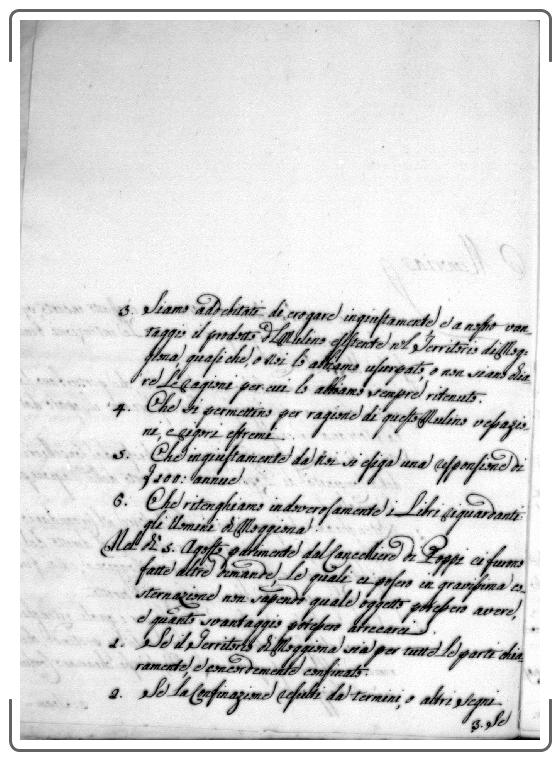 3. Siamo addebitati di erogare ingiustamente e a nostro van
taggio il prodotto del Mulino esistente nel Territorio di Mog=
giona quasi che, o Noi lo abbiamo usurpato, o non siano chia
re le ragioni per cui lo abbiamo sempre ritenuto.
4. Che si permettino per ragione di questo Mulino vessazio
ni, e rigori estremi.
5. Che ingiustamente da Noi si esiga una responsione di
100: annue
6. Che ritenghiamo indoverosamente i Libri riguardanti
gli Uomini di Moggiona
Nel dì 5. Agosto parimente dal Cancelliere di Poppi ci furno
fatte altre dimande, le quali ci posero in gravissima co
sternazione non sapendo quale oggetto potessero avere,
e quanto svantaggio potessero arrecarci
1. Se il Territorio di Moggiona sia per tutte le parti chia
ramente, e concordemente confinato.
2. Se la Confinazione resulti da termini, o altri segni
3. Se